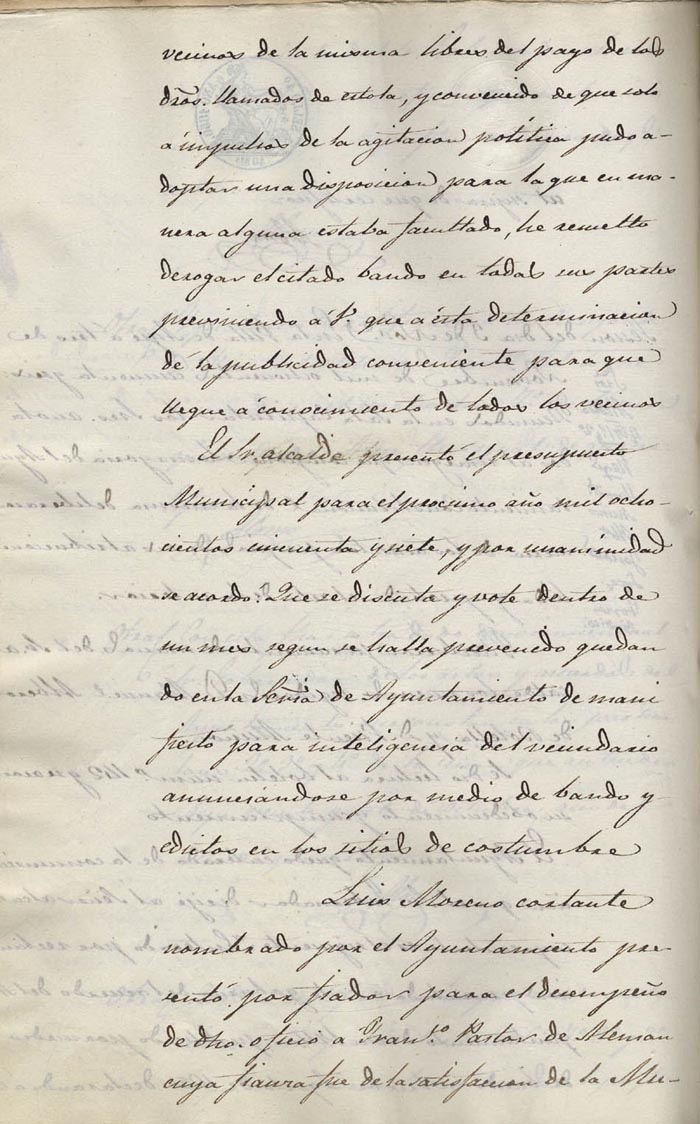 vecinos de la misma libres del pago de los
dros. llamados de estola, y convencido de que solo
á impulsos de la agitacion política pudo a-
doptar una disposicion para la que en ma-
nera alguna estaba facultado, he resuelto
derogar el citado bando en todas sus partes
previniendo á V. que a ésta determinacion
dé la publicidad conveniente para que
llegue á conocimiento de todos los vecinos
El Sr. alcalde presentó el presupuesto
Municipal para el procsimo año mil ocho-
cientos cincuenta y siete, y por unanimidad
se acordó: Que se discuta y vote dentro de
un mes segun se halla prevenido quedan
do en la Sria de Ayuntamiento de mani
fiesto para inteligencia del vecindario
anunciandose por medio de bando y
edictos en los sitios de costumbre
Luis Moreno cortante
nombrado por el Ayuntamiento pre-
sentó por fiador para el desempeño
de dho. oficio a Fran.co Pastor de Aleman
cuya fianza fue de la satisfaccion de la Mu-